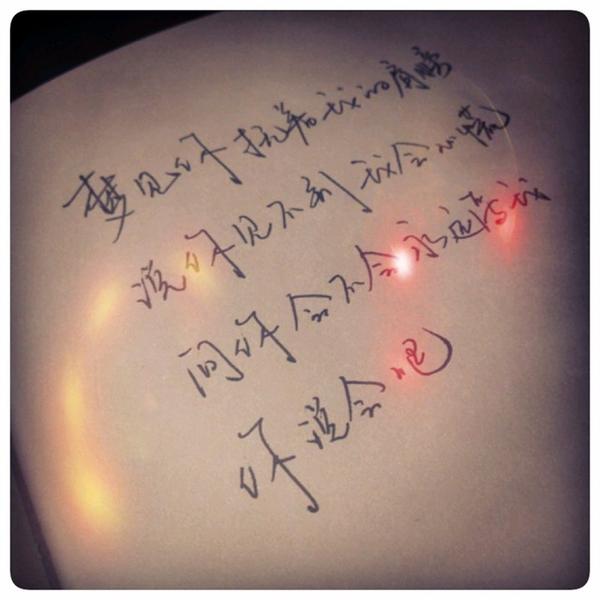 梦见你着我的肩膀
说你见不到我会心慌
问你会不会永远我
你说会吧